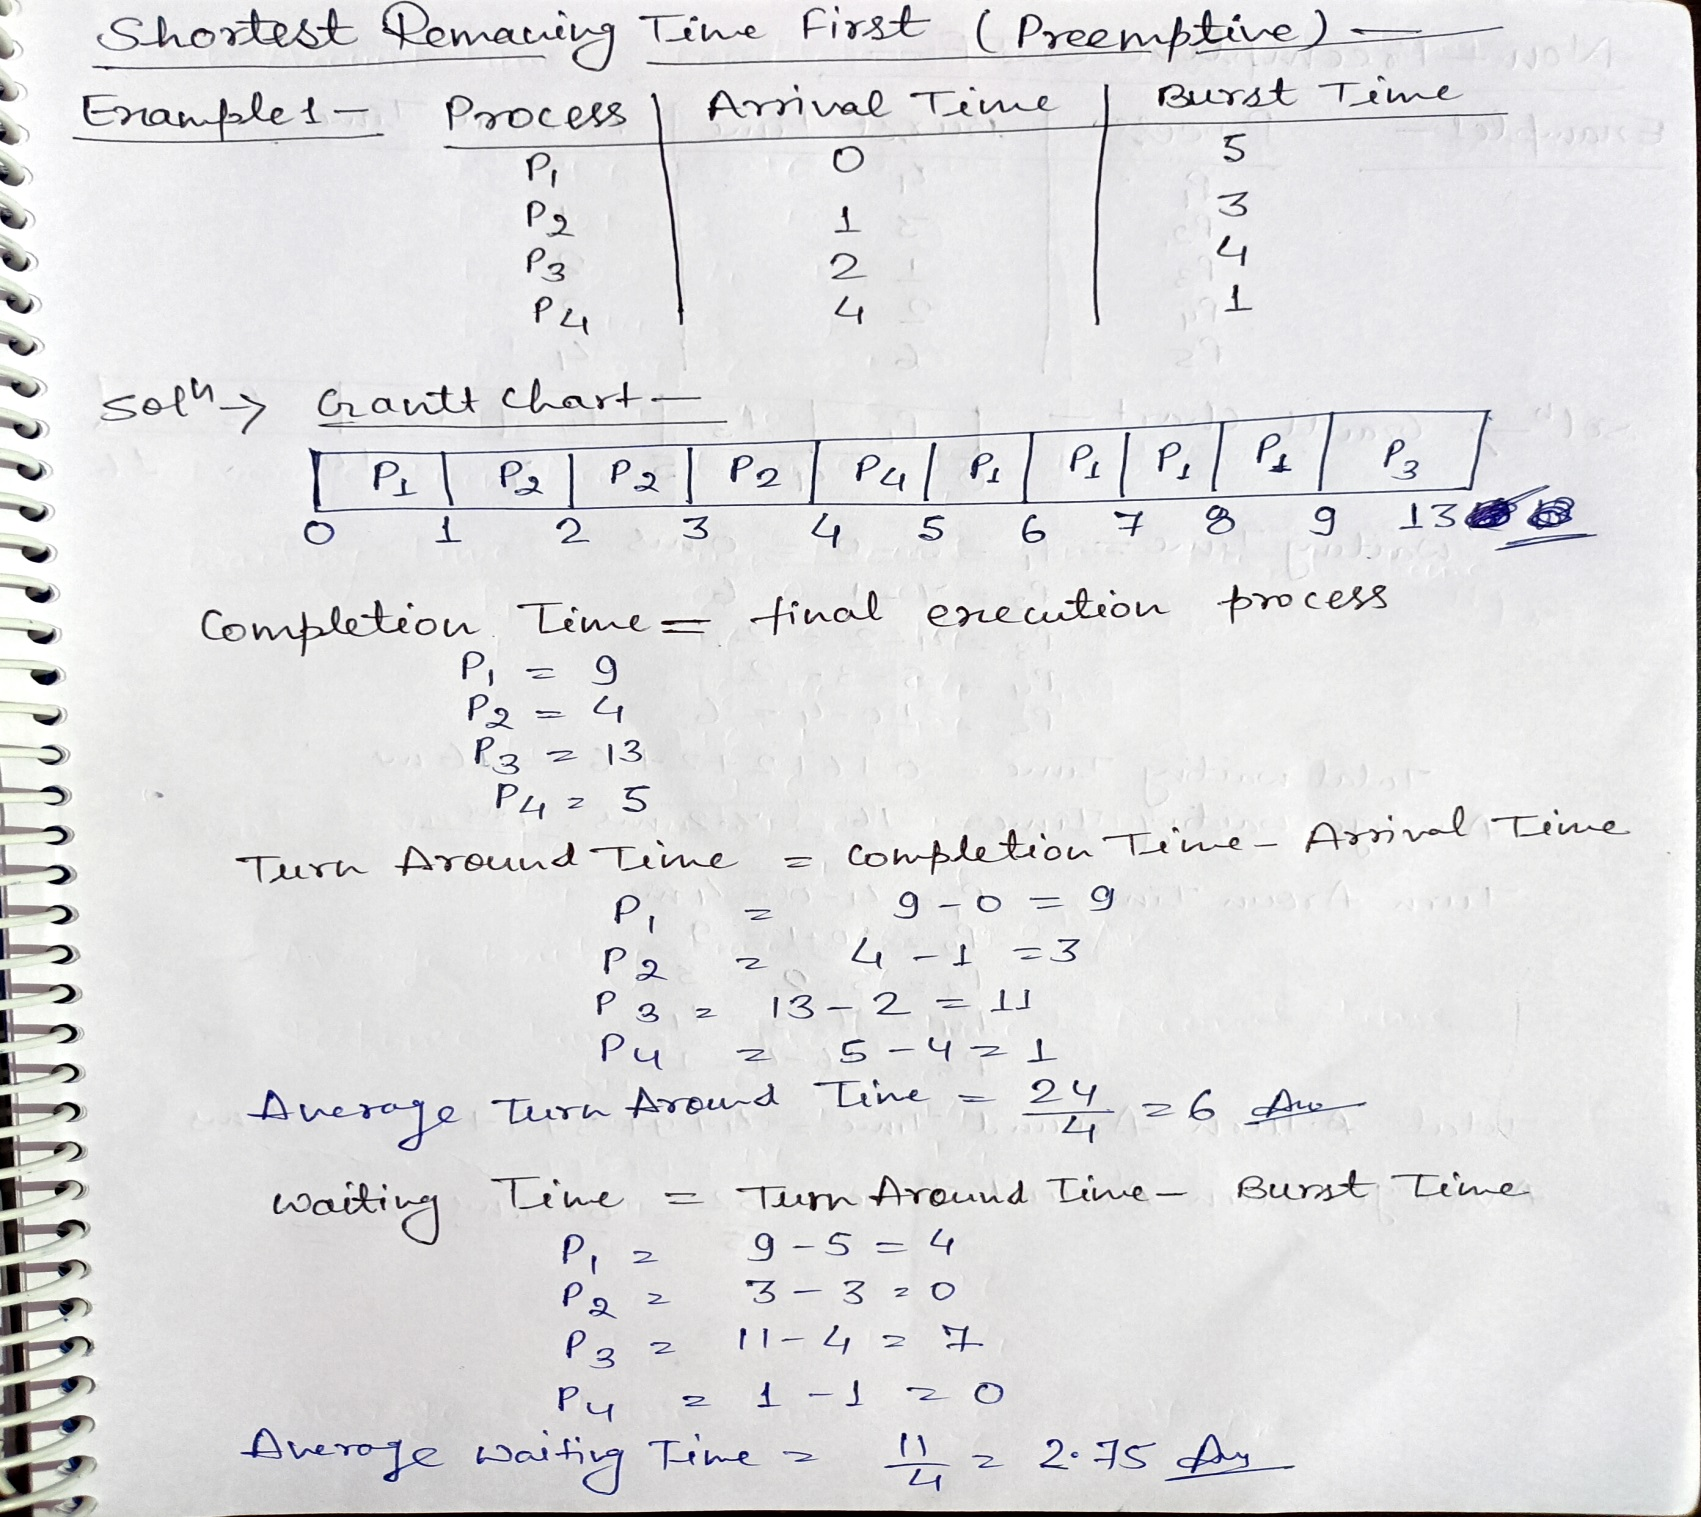 Shortest Remaning Time First (Preemptive) —
Example 1 — Process | Arrival Time | Burst Time
P1 0 5
P2 1 3
P3 2 4
P4 4 1
Solⁿ → Gantt Chart —
P1 | P2 | P2 | P2 | P4 | P1 | P1 | P1 | P1 | P3
0 1 2 3 4 5 6 7 8 9 13
Completion Time = final execution process
P1 = 9
P2 = 4
P3 = 13
P4 = 5
Turn Around Time = Completion Time - Arrival Time
P1 = 9 - 0 = 9
P2 = 4 - 1 = 3
P3 = 13 - 2 = 11
P4 = 5 - 4 = 1
Average Turn Around Time = 24/4 = 6 Ans
Waiting Time = Turn Around Time - Burst Time
P1 = 9 - 5 = 4
P2 = 3 - 3 = 0
P3 = 11 - 4 = 7
P4 = 1 - 1 = 0
Average Waiting Time = 11/4 = 2.75 Ans